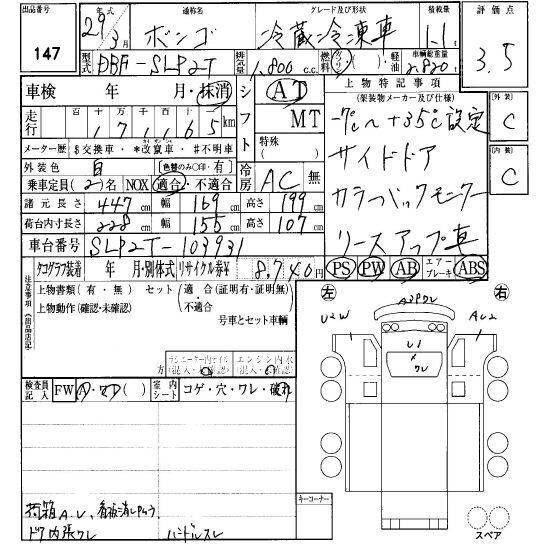 出品番号 147
年式 29/3月 通称名 ボンゴ グレード及び形状 冷蔵冷凍車 積載量 1.1t 評価点 3.5
型式 DBF-SLP2T 排気量 1,800 c.c. 燃料 ガソリン・軽油 車輌総重量 2,820
車検 年 月・抹消 シフト AT MT
走行 百 十 万 千 百 十 一 171,165 km
メーター歴 $交換車・*改竄車・#不明車 特殊( )
外装色 白 〔色替のみ○印・有〕 冷房 AC 無
乗車定員(2)名 NOX 適合・不適合
諸元長さ 447cm 幅 169cm 高さ 199cm
荷台内寸長さ 228cm 幅 155cm 高さ 107cm
車台番号 SLP2T-103931
上物特記事項
(架装物メーカー及び仕様)
-7℃〜+35℃設定
サイドドア
カラーバックモニター
リースアップ車
PS PW AB エアーブレーキ ABS
〔外装〕 C
〔内装〕 C
タコグラフ装着 年 月・別体式 リサイクル券¥ 8,740円
注意事項《出品店記》
上物書類(有・無) セット(適合(証明有・証明無)・不適合)
上物動作(確認・未確認) 号車とセット車輌
検査員記入 FW A・ ( ) 室内シート コゲ・穴・ワレ・破れ
荷箱A.U、看板消しやけ
ドア内張ワレ ハンドルスレ
キーコーナー
左 右
U2W A3PDV AU2
U1
ワレ
スペア